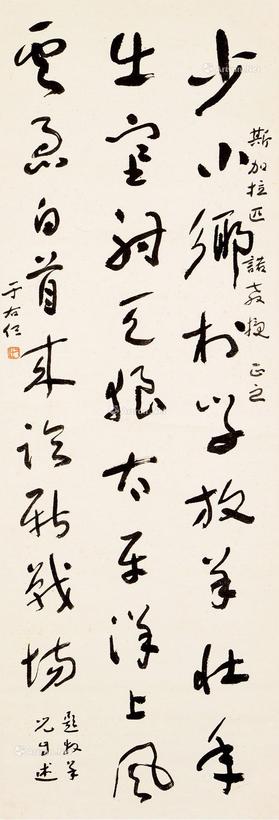 斯加拉匹諾教授正之
少小鄉村學放羊壯年
出塞射天狼太平洋上風
雲急白首來論新戰場
題牧羊
兒自述
于右任